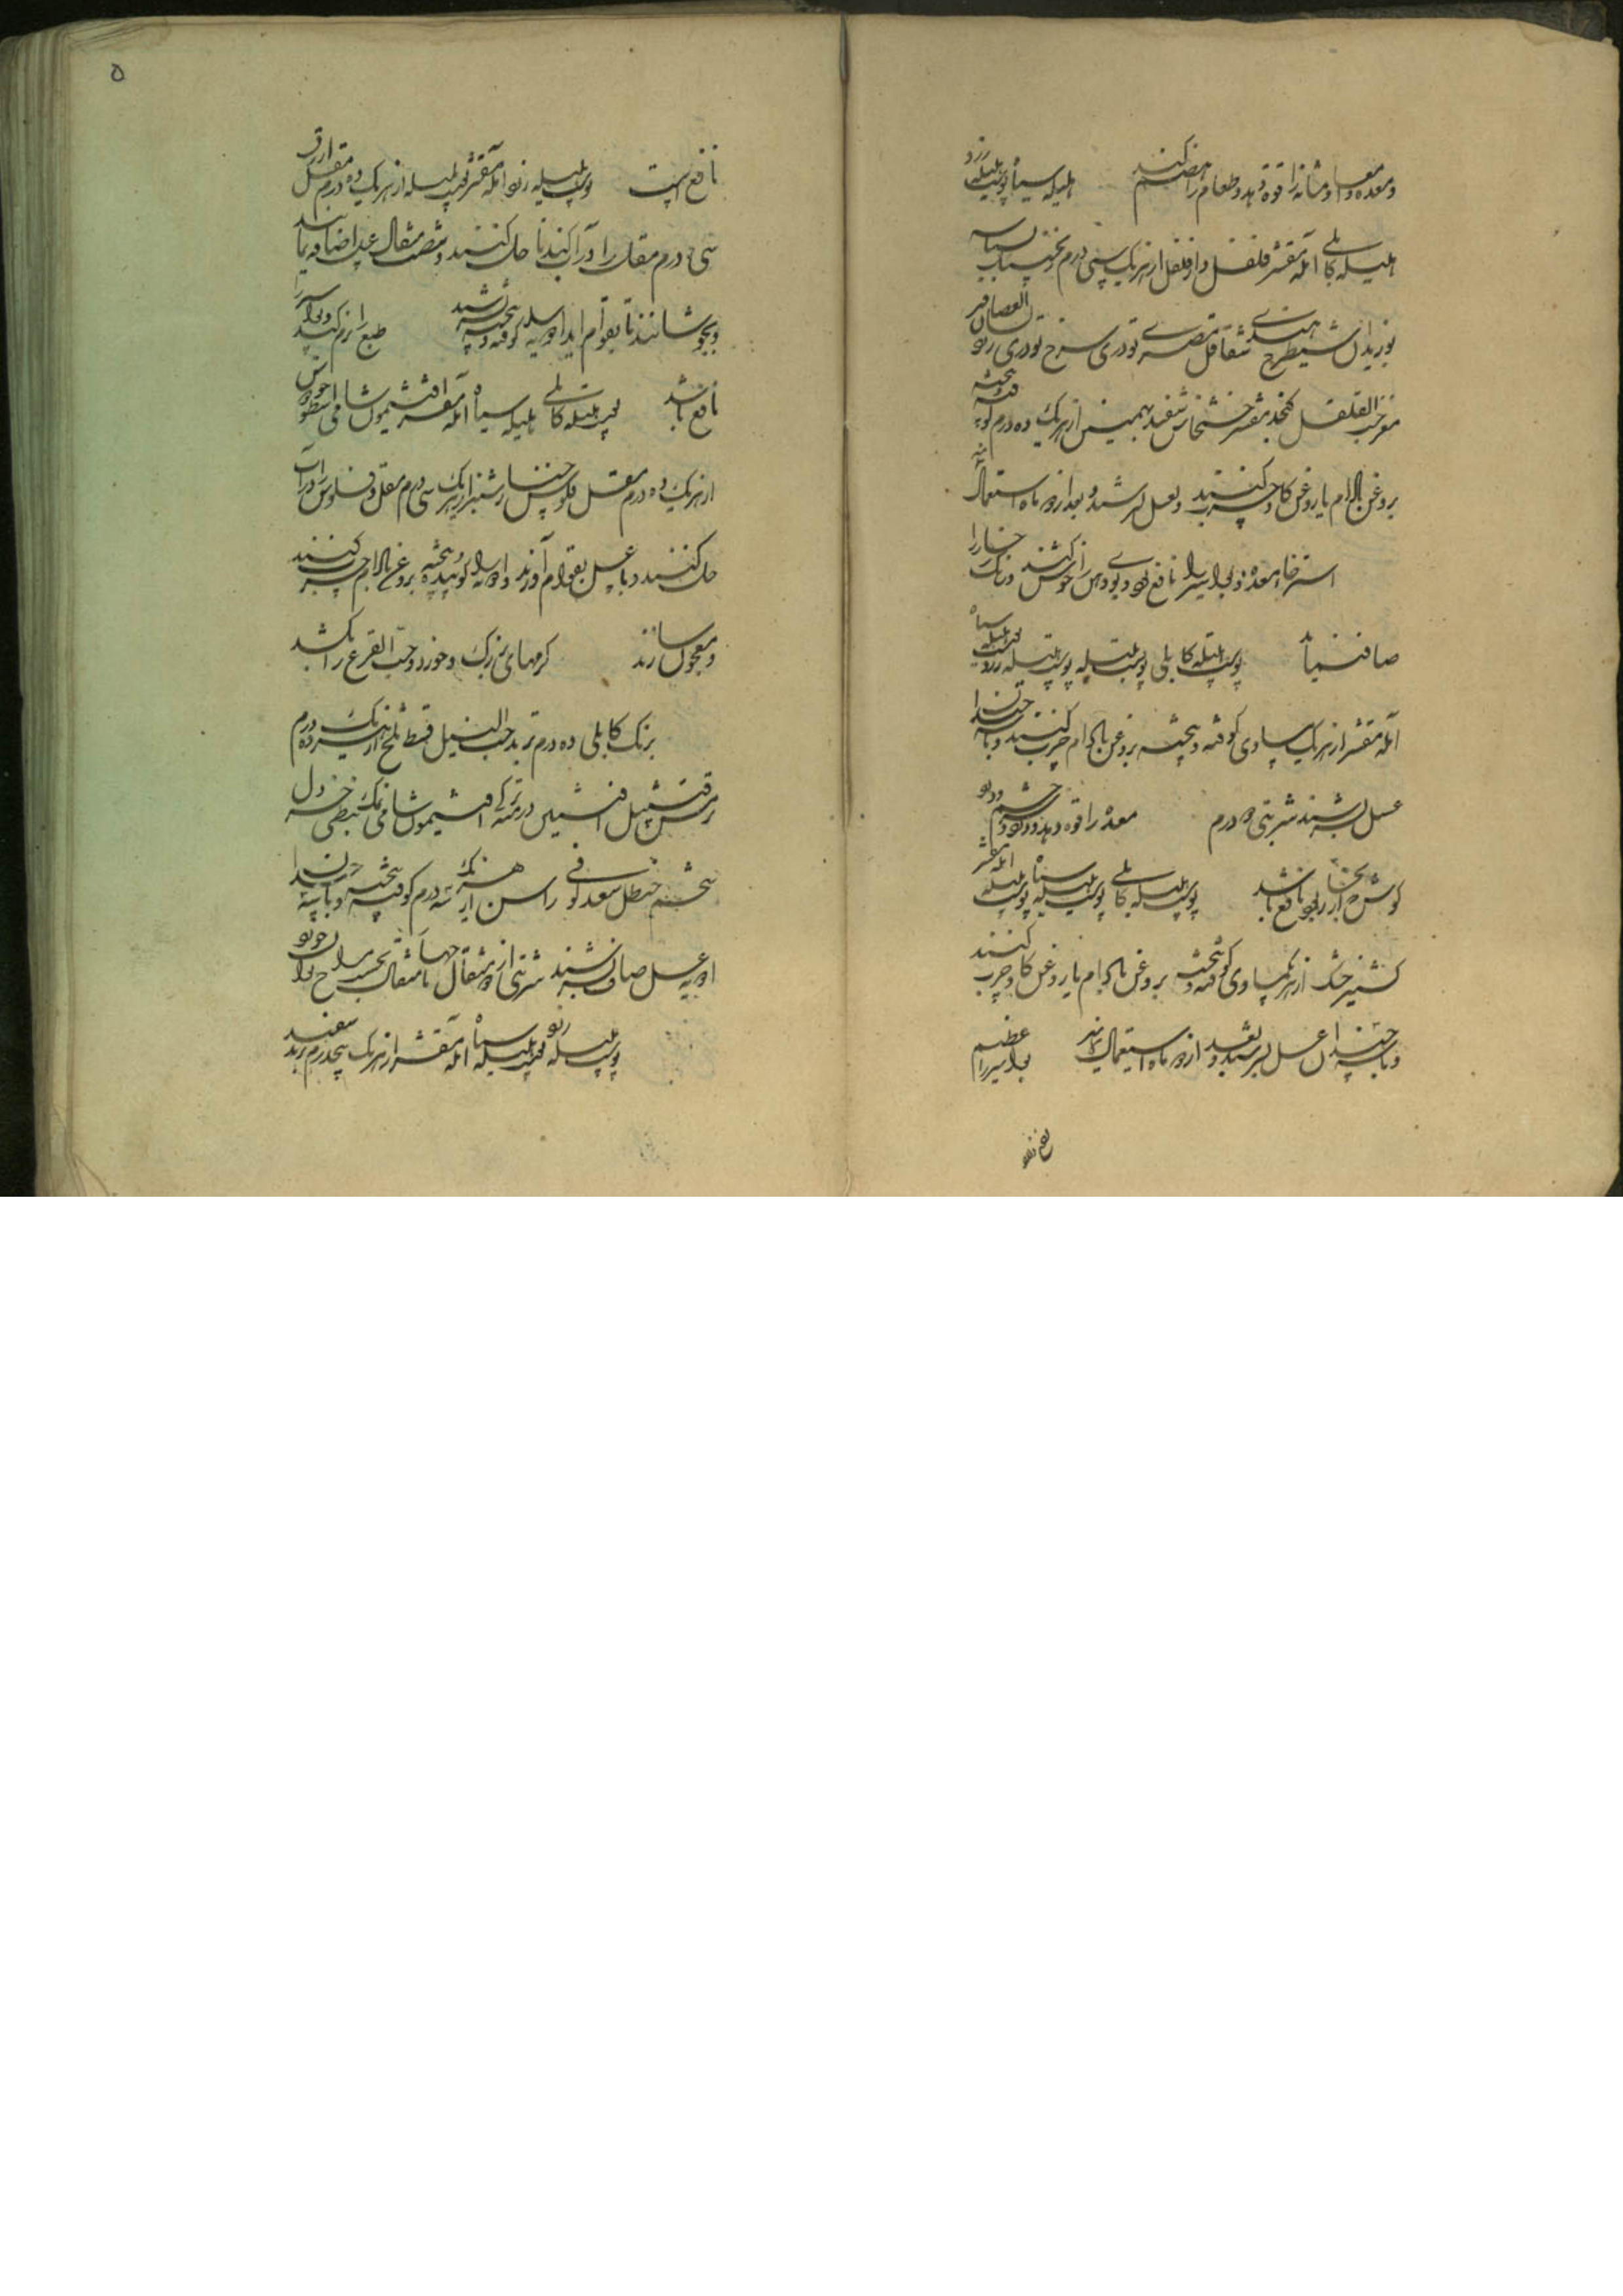 ومعده و امعا و مثانه را قوة دهد و طعام را هضم کند هلیله سیاه پوست بلیله زرد
هلیله کابلی آمله مقشر فلفل دارفلفل از هریک سی درم
بوزیدان شیطرج هندی شقاقل مصری تودری سرخ تودری زرد لسان العصافیر
مغز حب القلقل کنجد مقشر خشخاش سفید بهمنین از هریک ده درم کوفته پخته
بروغن بادام یا روغن کاو چرب کنند و بعسل بسرشند و بعد از دو ماه استعمال
استرخاء معده و بواسیر را نافع بود و بوی دهن را خوش کند و رنک رخسار را
صاف نماید پوست هلیله کابلی پوست بلیله پوست هلیله زرد هلیله سیاه
آمله مقشر از هریک مساوی کوفته و پخته بروغن بادام چرب کنند و با سه چندان
عسل بسرشند شربتی دو درم معده را قوه دهد و درد چشم و درد
کوش که از بخار بود نافع باشد پوست هلیله کابلی پوست هلیله سیاه پوست بلیله آمله مقشر
کشنیز خشک از هریک مساوی کوفته و پخته بروغن بادام یا روغن کاو چرب کنند
و با سه چندان عسل بسرشند و بعد از دو ماه استعمال نمایند بواسیر را عظیم
نافع است پوست هلیله زرد آمله مقشر پوست بلیله از هریک ده درم مقل ازرق
سی درم مقل را در آب کندنا حل کنند و شصت مثقال عسل اضافه نمایند
و بجوشانند تا بقوام آید ادویه را کوفته و پخته بسرشند طبع را نرم کند و بواسیر را
نافع باشد پوست هلیله کابلی هلیله سیاه آمله مقشر افتیمون شامی اسطوخودوس
از هریک ده درم مقل فلوس خیارشنبر از هریک سی درم مقل و فلوس را در آب
حل کنند و با عسل بقوام آورند و ادویه را کوبیده و پخته بروغن بادام چرب کنند
و معجون سازند کرمهای بزرک و خورد و حب القرع را بکشد
برنک کابلی ده درم تربد حب النیل قسط تلخ از هریک ده درم
سرخس قنبیل افسنتین درمنه ترکی افتیمون شامی نمک نفطی خردل
شحم حنظل سعد کوفی راسن از هریک سه درم کوفته و پخته و با سه چندان
ادویه عسل صاف بسرشند شربتی از دو مثقال تا چهار مثقال
پوست هلیله زرد هلیله سیاه آمله مقشر از هریک پنجدرم تربد سفید
۵